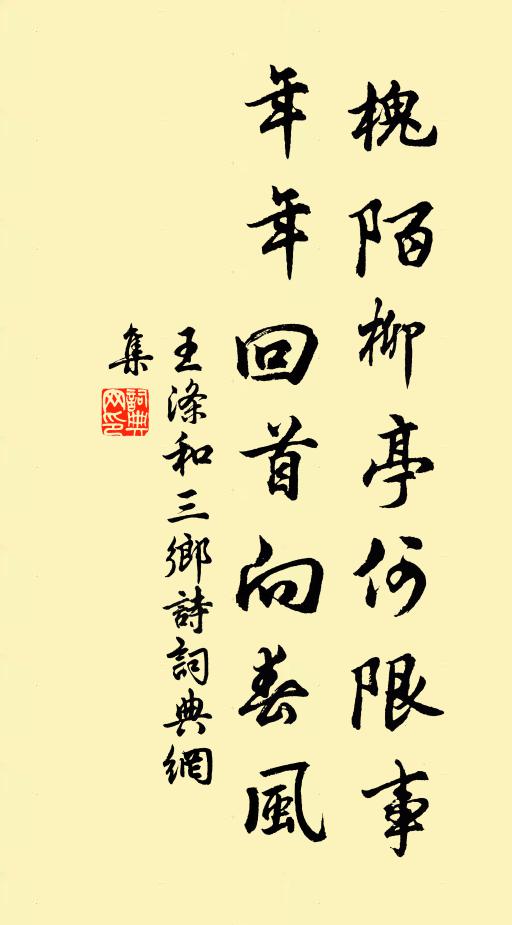 槐陌柳亭何限事
年年回首向春風
王滌和三鄉詩詞典網
集
詞典
网印